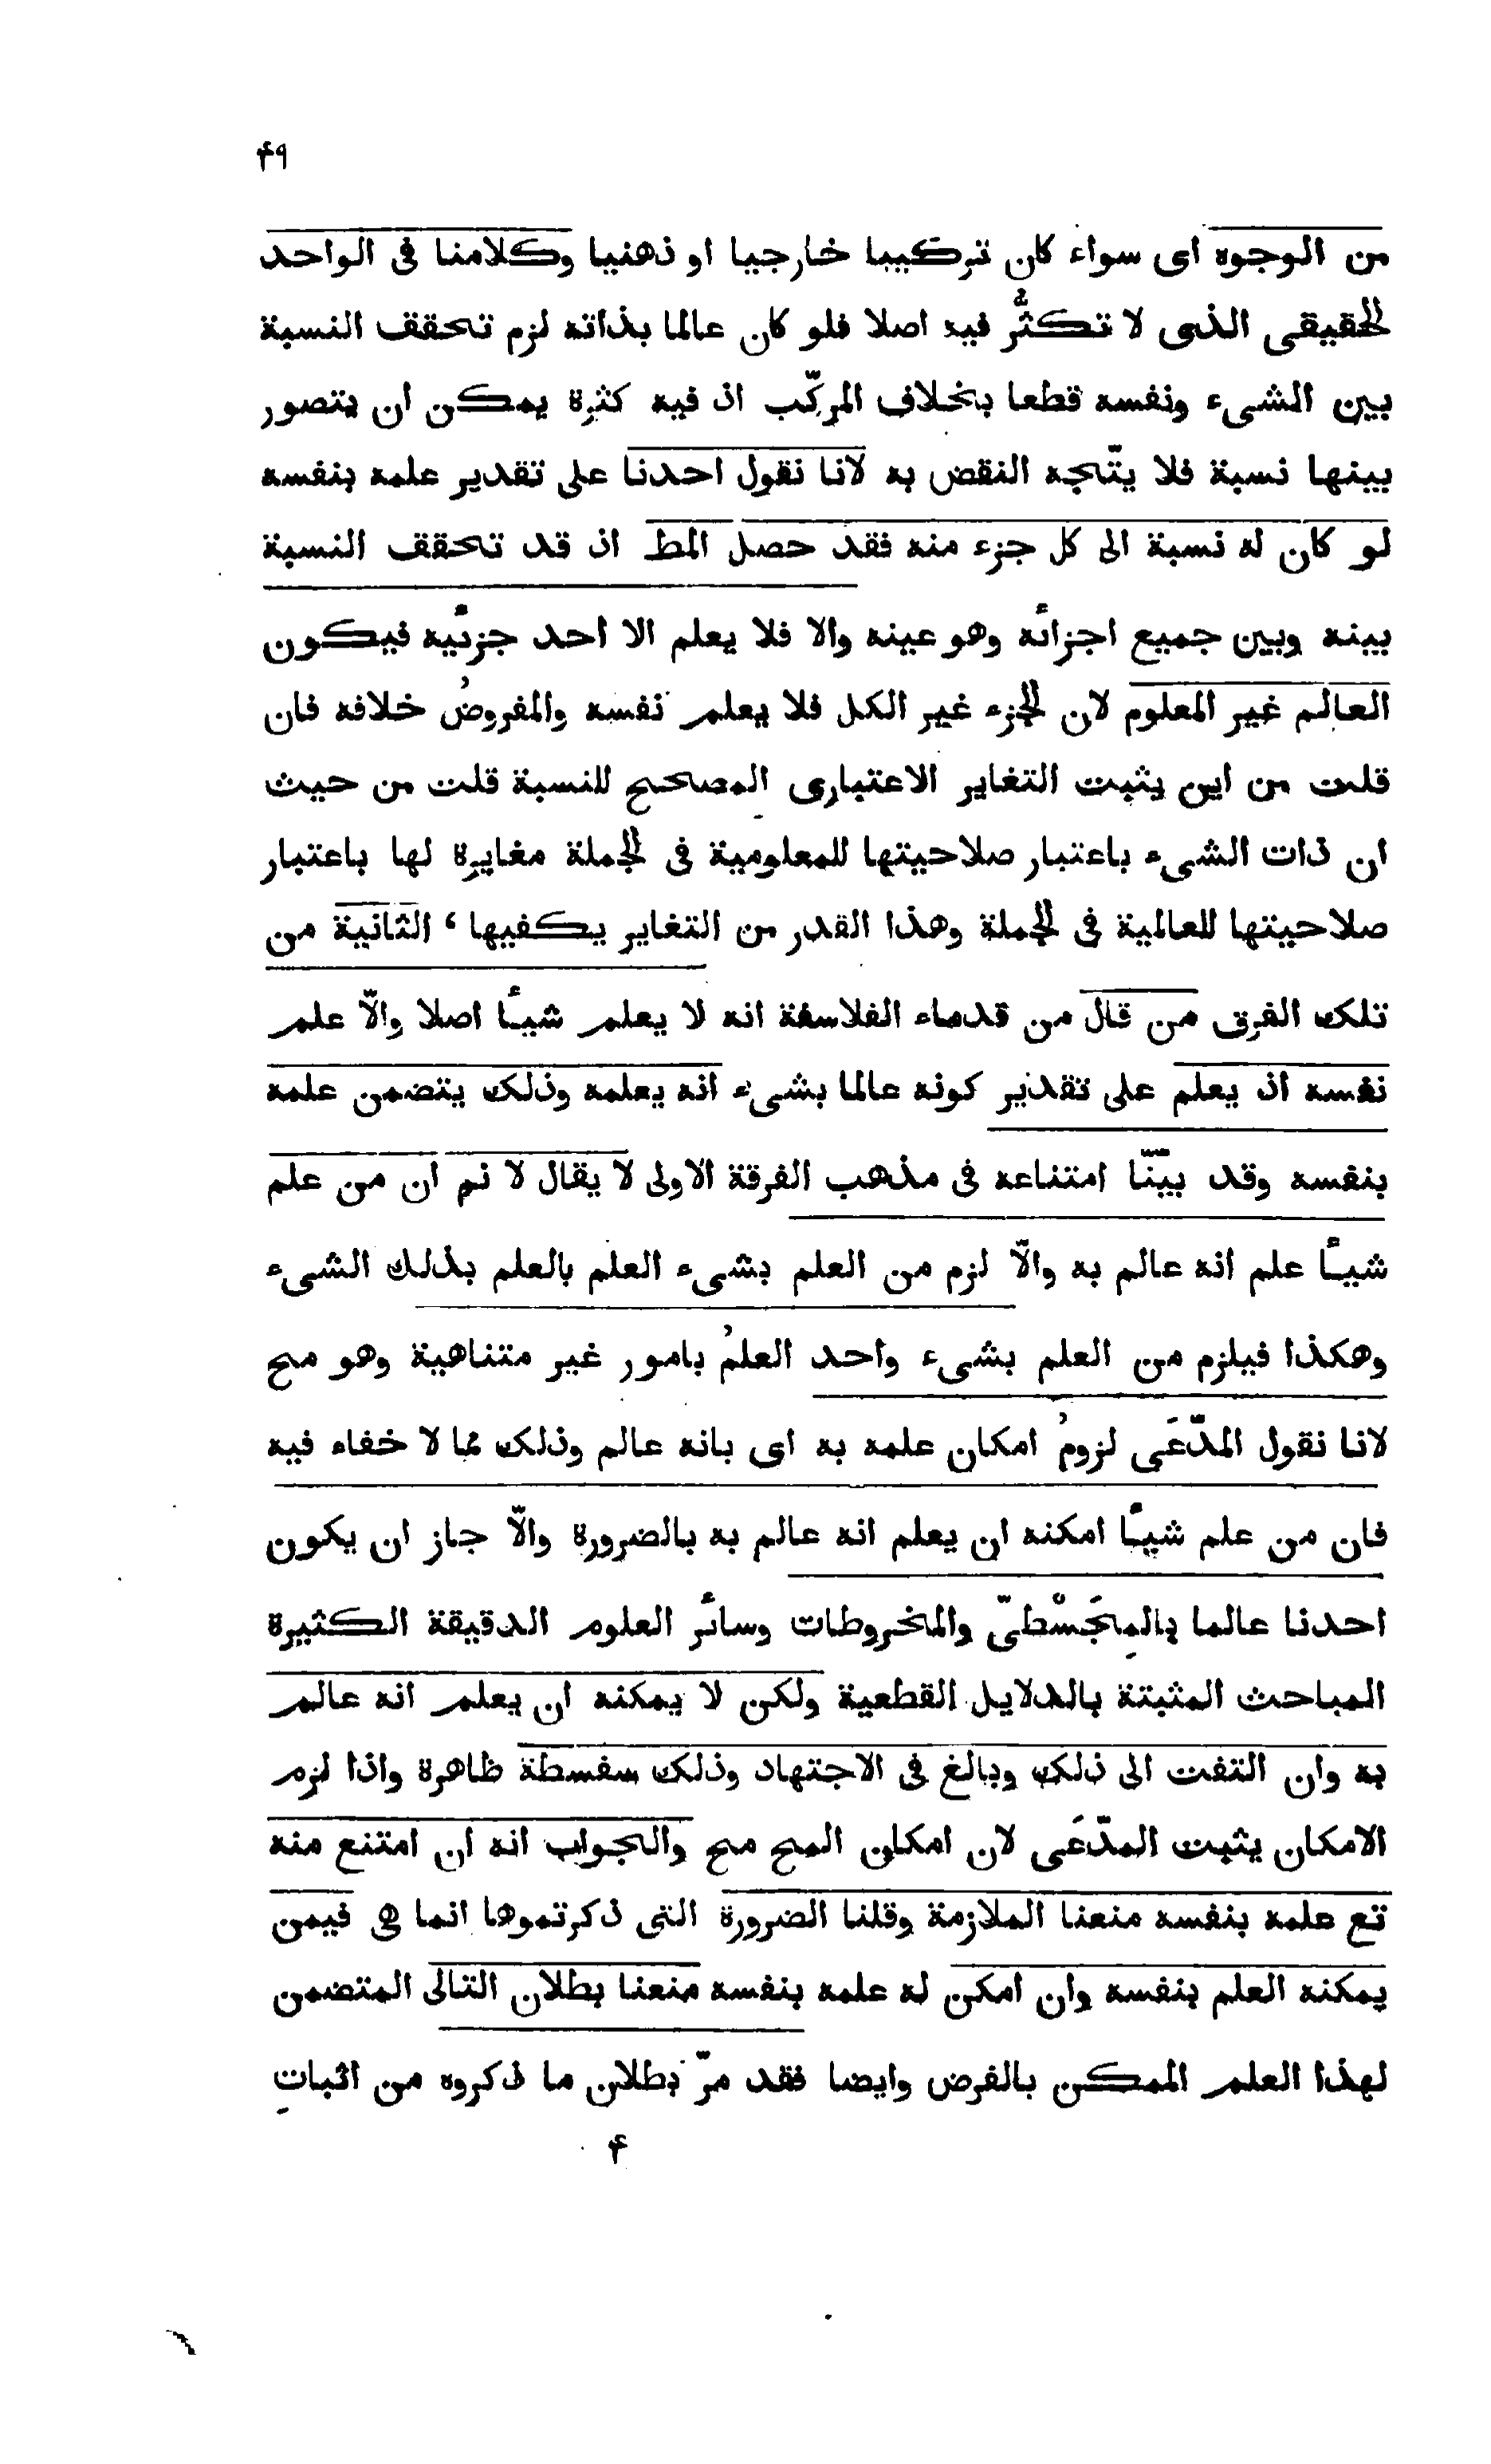 ۴۹
من الوجوه اى سواء كان تركيبا خارجيا او ذهنيا وكلامنا فى الواحد
الحقيقى الذى لا تكثُّر فيه اصلا فلو كان عالما بذاته لزم تحقق النسبة
بين الشىء ونفسه قطعا بخلاف المركّب اذ فيه كثرة يمكن ان يتصور
بينها نسبة فلا يتّجه النقض به لانا نقول احدنا على تقدير علمه بنفسه
لو كان له نسبة الى كل جزء منه فقد حصل المط اذ قد تحقق النسبة
بينه وبين جميع اجزائه وهو عينه والا فلا يعلم الا احد جزئيه فيكون
العالم غير المعلوم لان الجزء غير الكل فلا يعلم نفسه والمفروضُ خلافه فان
قلت من اين يثبت التغاير الاعتبارى المصحح للنسبة قلت من حيث
ان ذات الشىء باعتبار صلاحيتها للمعلومية فى الجملة مغايرة لها باعتبار
صلاحيتها للعالمية فى الجملة وهذا القدر من التغاير يكفيها ، الثانية من
تلك الفرق من قال من قدماء الفلاسفة انه لا يعلم شيئًا اصلا والّا علم
نفسه اذ يعلم على تقدير كونه عالما بشىء انه يعلمه وذلك يتضمن علمه
بنفسه وقد بيّنّا امتناعه فى مذهب الفرقة الاولى لا يقال لا نم ان من علم
شيئًا علم انه عالم به والّا لزم من العلم بشىء العلم بالعلم بذلك الشىء
وهكذا فيلزم من العلم بشىء واحد العلمُ بامور غير متناهية وهو مح
لانا نقول المدّعَى لزومُ امكان علمه به اى بانه عالم وذلك مما لا خفاء فيه
فان من علم شيئًا امكنه ان يعلم انه عالم به بالضرورة والّا جاز ان يكون
احدنا عالما بالمِجَسْطىّ والمخروطات وسائر العلوم الدقيقة الكثيرة
المباحث المثبتة بالدلايل القطعية ولكن لا يمكنه ان يعلم انه عالم
به وان التفت الى ذلك وبالغ فى الاجتهاد وذلك سفسطة ظاهرة واذا لزم
الامكان يثبت المدّعَى لان امكان المح مح والجواب انه ان امتنع منه
تع علمه بنفسه منعنا الملازمة وقلنا الضرورة التى ذكرتموها انما هى فيمن
يمكنه العلم بنفسه وان امكن له علمه بنفسه منعنا بطلان التالى المتضمن
لهذا العلم الممكن بالفرض وايضا فقد مرّ بطلان ما ذكروه من اثباتِ
۴